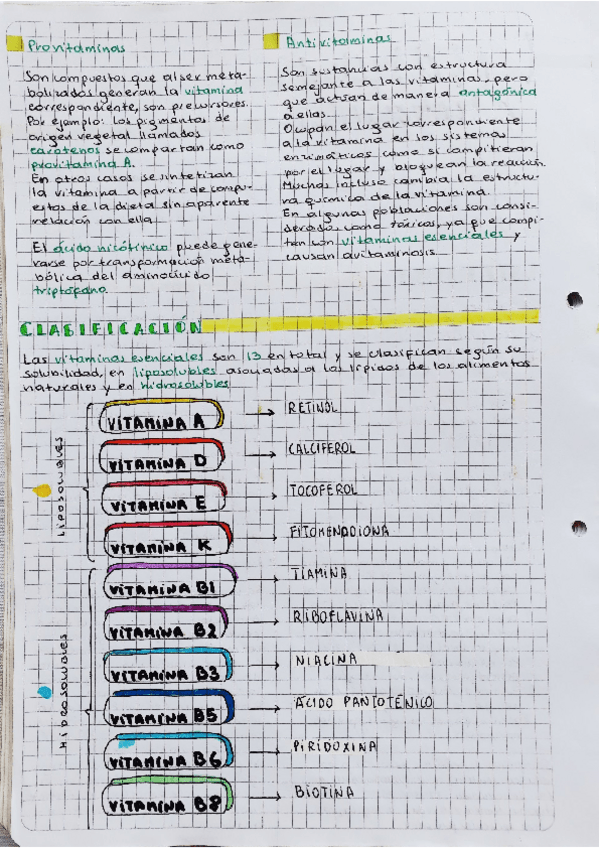 Provitaminas
Son compuestos que al ser meta-
bolizados generan la vitamina
correspondiente, son precursores.
Por ejemplo: los pigmentos de
origen vegetal llamados
carotenos se comportan como
provitamina A.
En otros casos se sintetizan
la vitamina a partir de compu-
estos de la dieta sin aparente
relación con ella
El ácido nicótinico puede gene-
rarse por transformación meta-
bólica del aminoácido
triptófano.
Antivitaminas
Son sustancias con estructura
semejante a las vitaminas, pero
que actúan de manera antagónica
a ellas.
Ocupan el lugar correspondiente
a la vitamina en los sistemas
enzimáticos como si compitieran
por el lugar y bloquean la reacción.
Muchas incluso cambia la estructu-
ra química de la vitamina.
En algunas poblaciones son consi-
derado como tóxicos, ya que compi-
ten con vitaminas esenciales y
causan avitaminosis.
CLASIFICACIÓN
Las vitaminas esenciales son 13 en total y se clasifican según su
solubilidad, en liposolubles asociadas a los lípidos de los alimentos
naturales y en hidrosolubles
LIPOSOLUBLES
VITAMINA A → RETINOL
VITAMINA D → CALCIFEROL
VITAMINA E → TOCOFEROL
VITAMINA K → FITOMENADIONA
HIDROSOLUBLES
VITAMINA B1 → TIAMINA
VITAMINA B2 → RIBOFLAVINA
VITAMINA B3 → NIACINA
VITAMINA B5 → ÁCIDO PANTOTÉNICO
VITAMINA B6 → PIRIDOXINA
VITAMINA B8 → BIOTINA